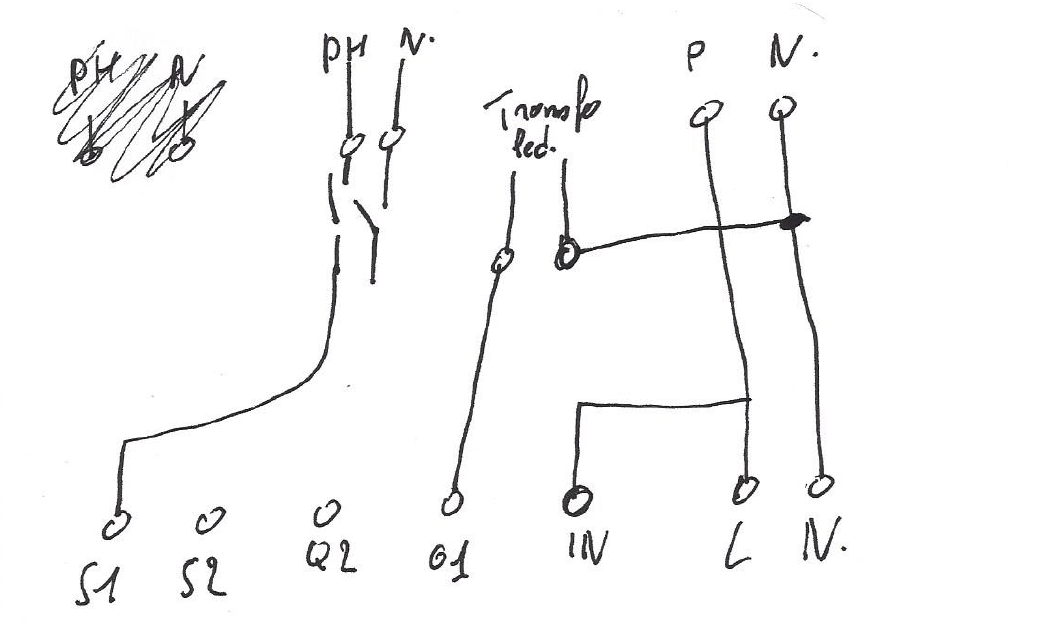 PH N
PH N.
P N.
Transfo
led.
S1 S2 Q2 Q1 IN L N.